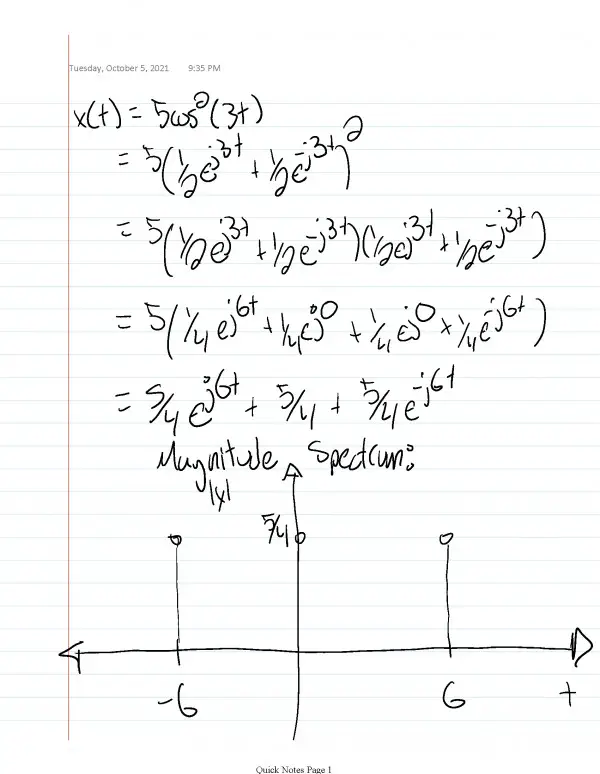 Tuesday, October 5, 2021 9:35 PM
x(t) = 5cos²(3t)
= 5(1/2e^j3t + 1/2e^-j3t)²
= 5(1/2e^j3t + 1/2e^-j3t)(1/2e^j3t + 1/2e^-j3t)
= 5(1/4e^j6t + 1/4e^j0 + 1/4e^j0 + 1/4e^-j6t)
= 5/4e^j6t + 5/4 + 5/4e^-j6t
Magnitude Spectrum:
|x|
5/4
-6 6 t
Quick Notes Page 1